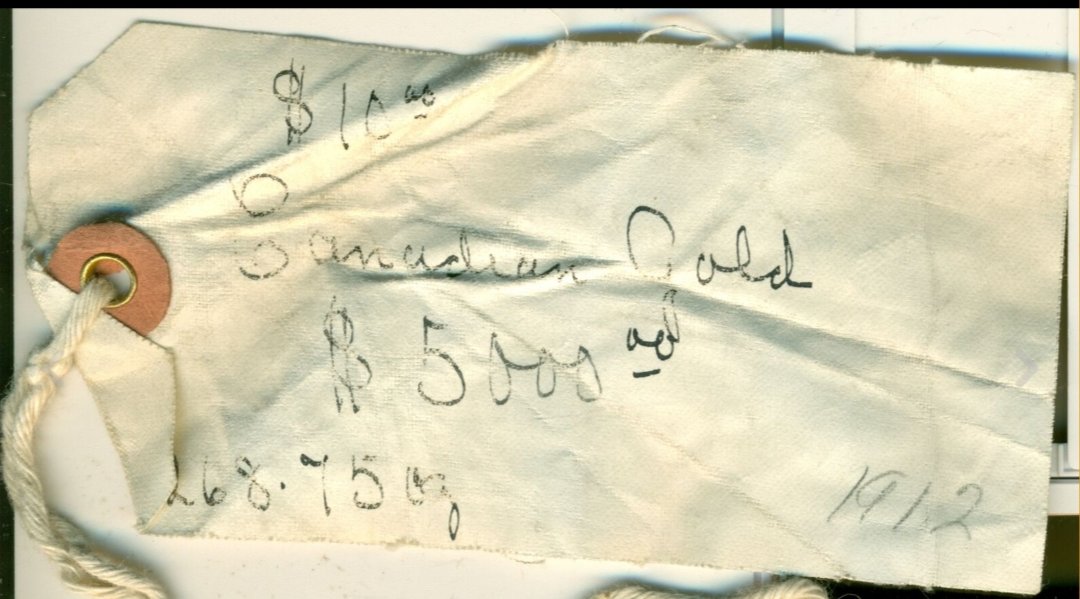 $10 00
Canadian Gold
$5000 00
268.75 oz
1912